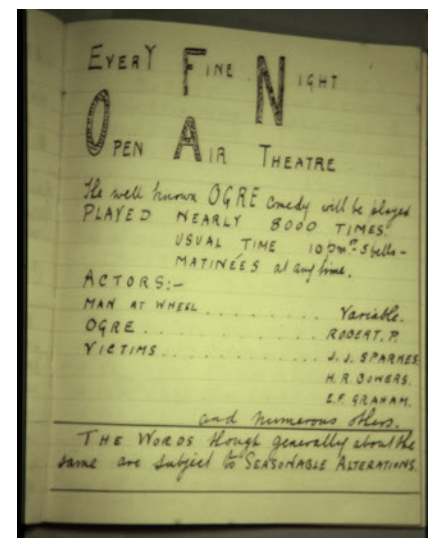 EVERY FINE NIGHT
OPEN AIR THEATRE
The well known OGRE comedy will be played
PLAYED NEARLY 8000 TIMES.
USUAL TIME 10 pm - 5 bells -
MATINÉES at any time.
ACTORS:-
MAN AT WHEEL . . . . . . . . Variable.
OGRE . . . . . . . . . . . . . ROBERT. P.
VICTIMS . . . . . . . . . . . . J. J. SPARKES
H. R. BOWERS.
E. F. GRAHAM.
and numerous others.
THE WORDS though generally about the
same are subject to SEASONABLE ALTERATIONS.